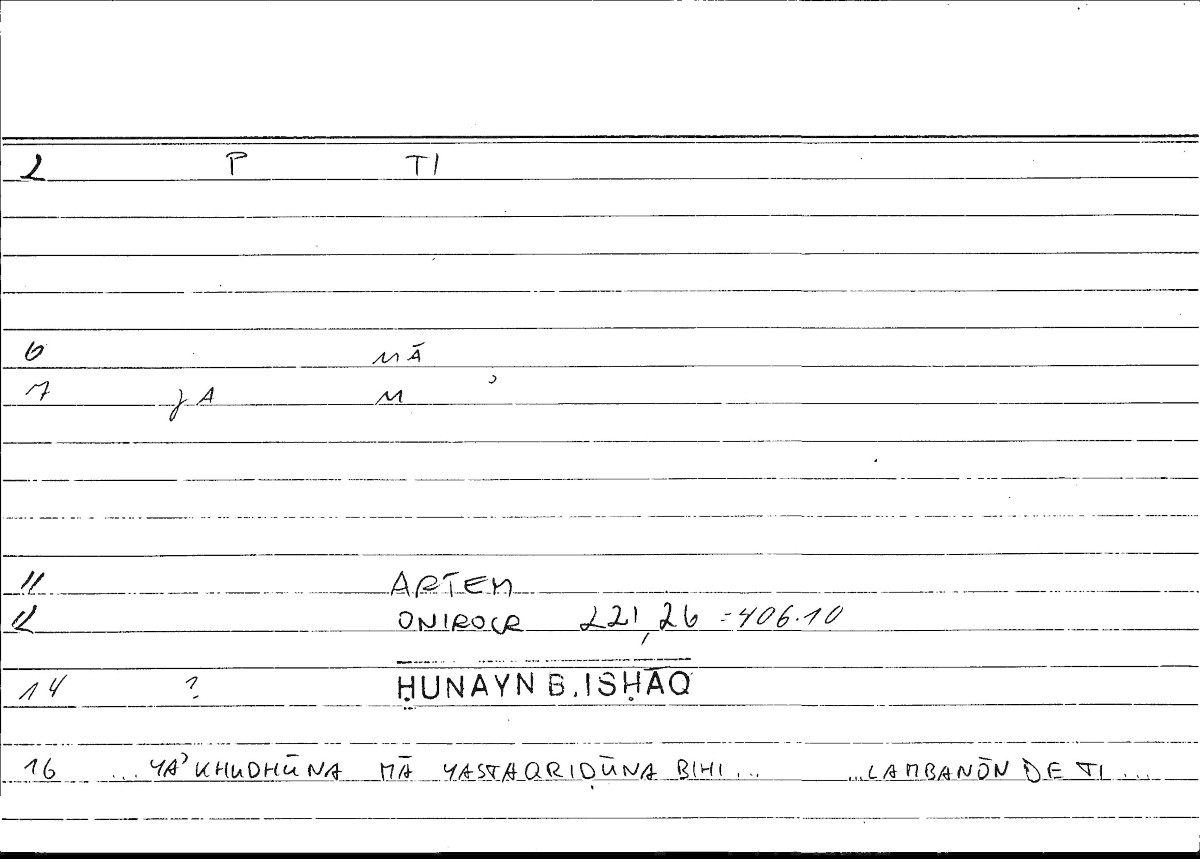 2 P TI
6 MĀ
7 JA M ʾ
11 ARTEM
12 ONIROCR 221,26 = 406.10
14 ? ḤUNAYN B. ISḤĀQ
16 ... YAʾKHUDHŪNA MĀ YASTAQRIḌŪNA BIHI ... ... LAMBANŌN DE TI ...